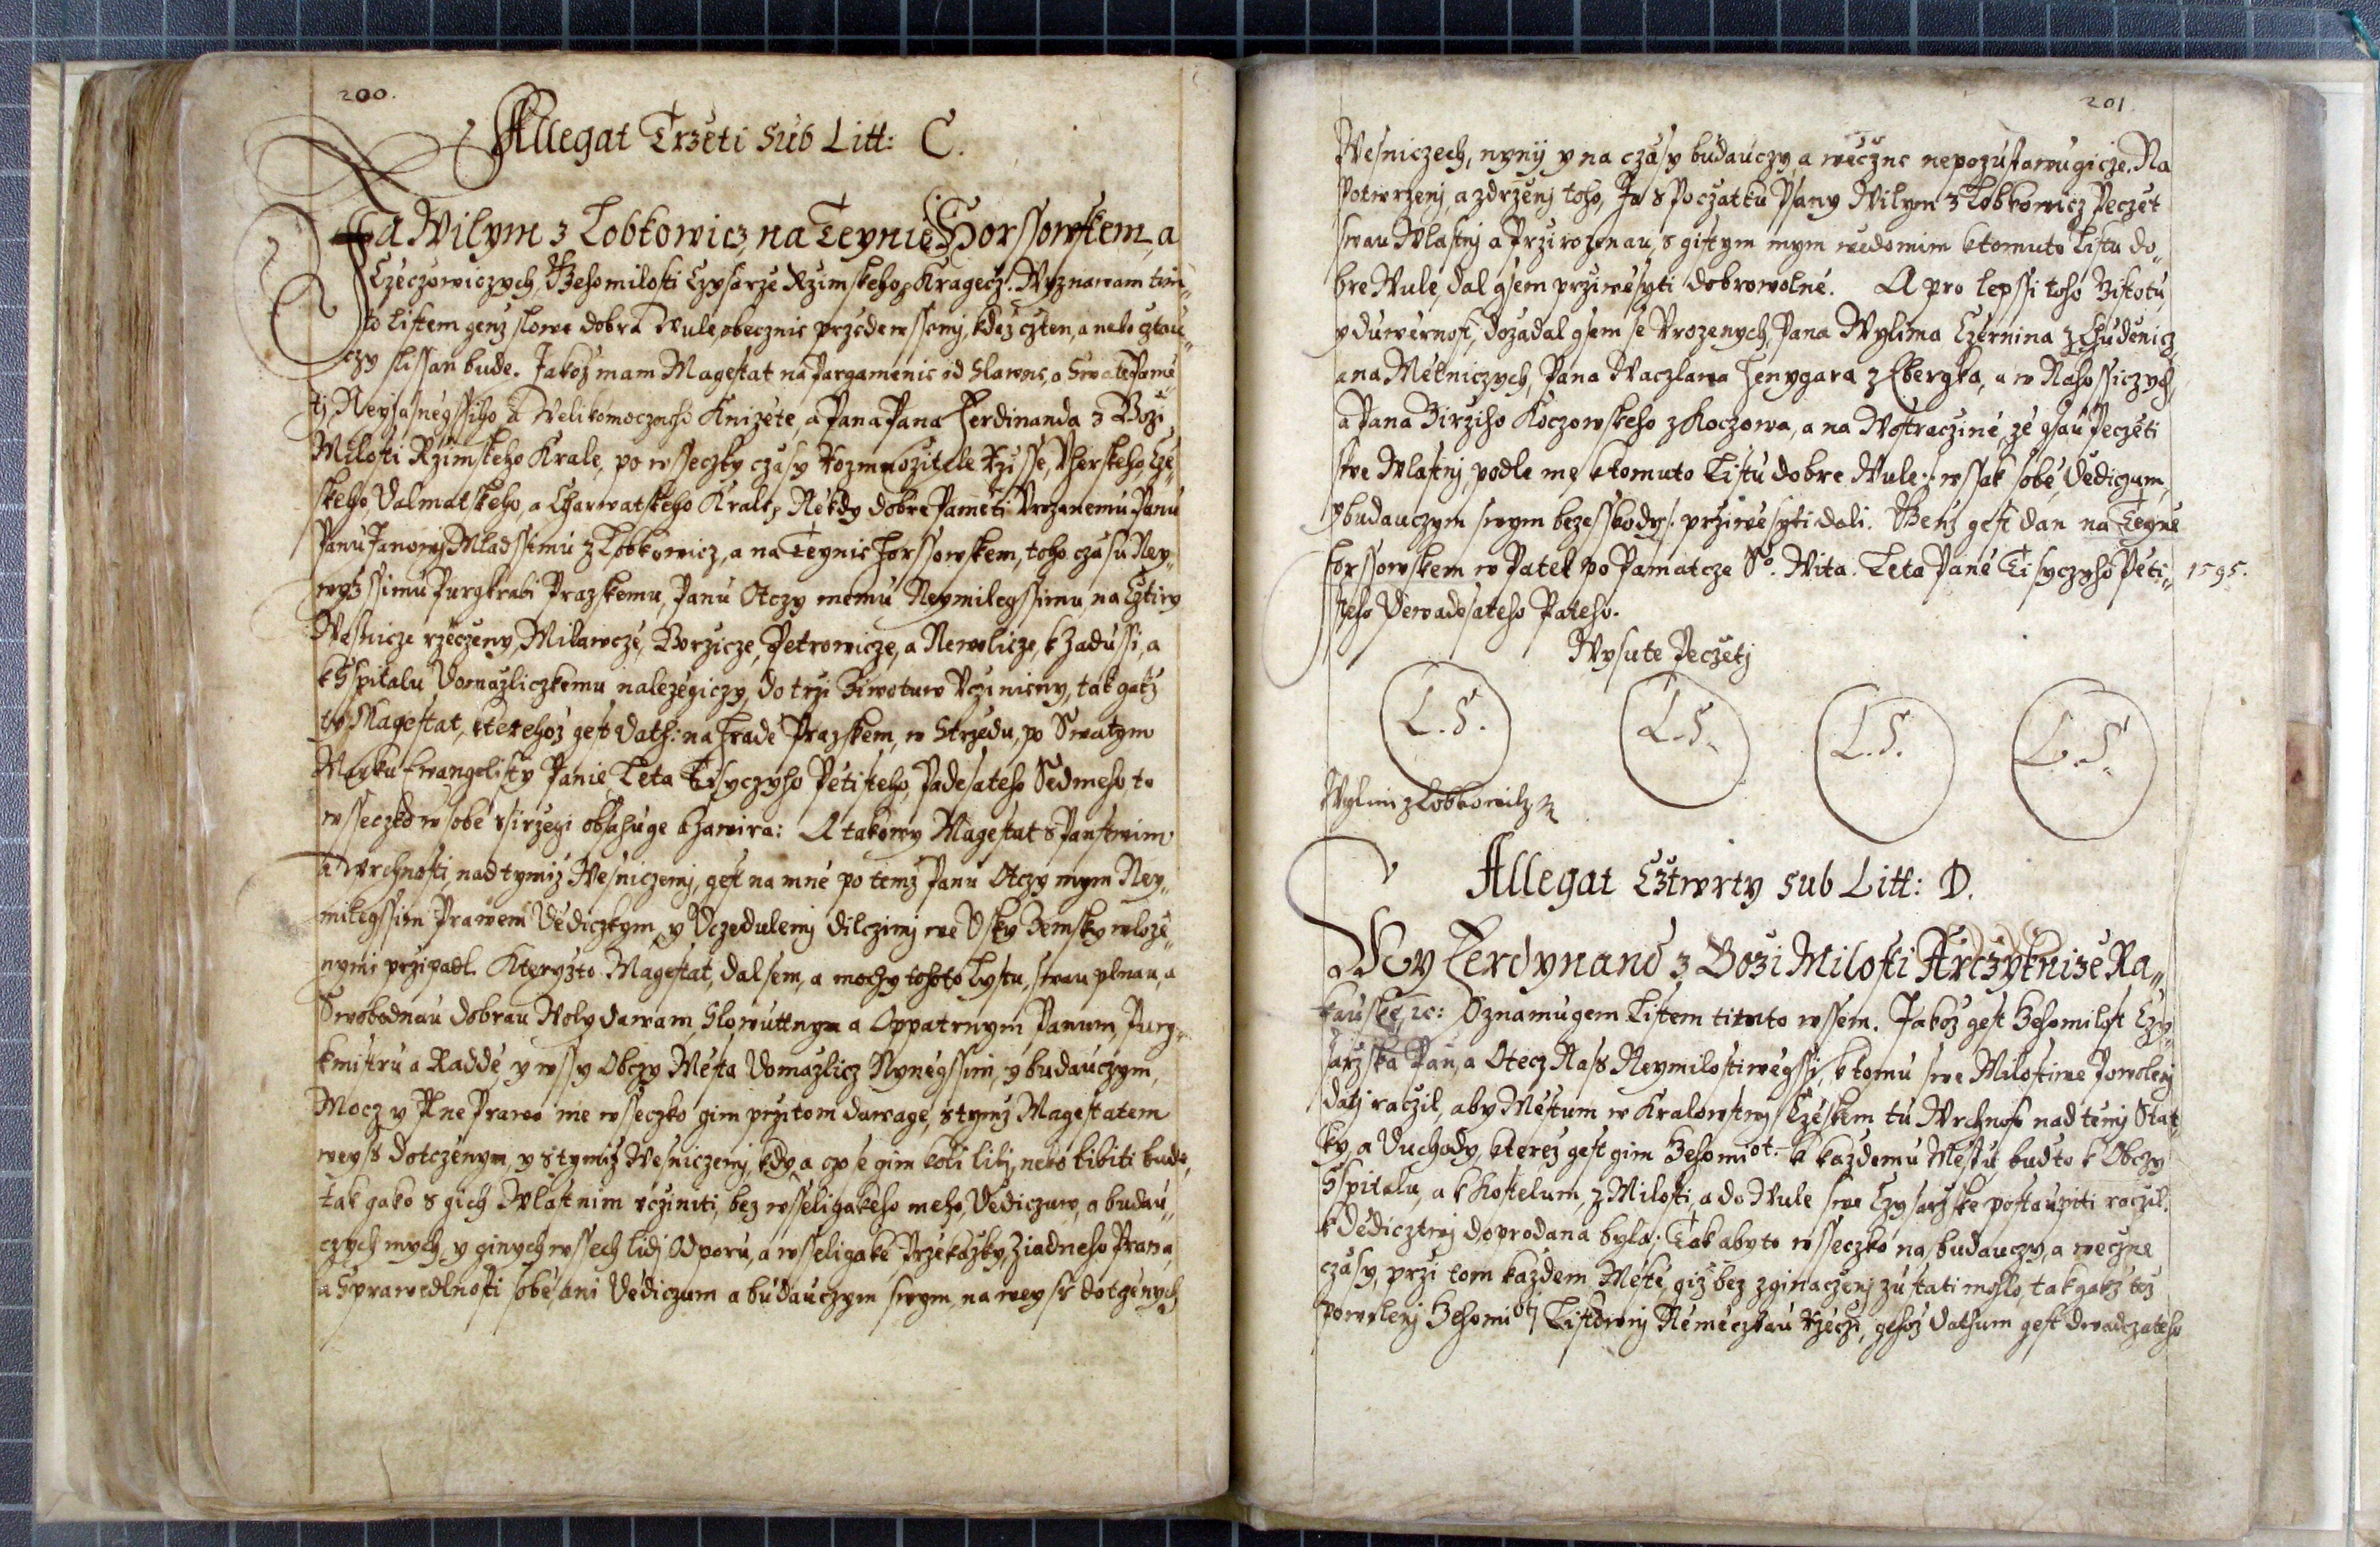 200.
Allegat Trzeti Sub Litt: C.
Ja Wilym z Lobkowicz na Teynie Horssowskem, a
Czeczowiczych, Gehomilosti Czysarze Rzimskeho, Kragecz. Wyznawam tim„
to listem genz slowe dobra Wule, obecznie przede wssemi, kdez czten, a nebo cztau„
czy slissan bude. Jakoz mam Magestat na Pargamenie od Slawne, a Swate Pame„
ti, Neyjasnegssiho, a Welikomoczneho Knizete, a Pana Pana Ferdinanda z Bozi
Milosti Rzimskeho Krale, po wsseczky czasy Rozmnozitele Rzisse, Vherskeho, Cze„
skeho, Dalmatskeho, a Charwatskeho Krale, Nekdy dobre Pameti Vrozenemu Panu
Panu Janowi Mladssimu z Lobkowicz, a na Teynie Horssowskem, toho czasu Ney„
wyzssimu Purgkrabi Prazskemu, Panu Otczy memu Neymilegssimu, na Cztiry
Wesnicze rzeczeny, Milawcze, Borzicze, Petrowicze, a Newolicze, k Zadussi, a
k Sspitalu Domazliczkemu nalezegiczy, do trzi Ziwotuw Vczineny, tak gakz
ty Magestat, kterehoz gest Dath: na Hrade Prazskem, w Strzedu, po Swatym
Marku Ewangelisty Panie, Leta Tisyczyho Petisteho, Padesateho Sedmeho, to
wsseczko w sobe ssirzegi obsahuge a zawira: A takowy Magestat s Panstwim
a Wrchnosti, nad tymiz Wesniczemi, gest na mne po temz Panu Otczy mym Ney„
milegssim Prawem Dediczkym, y Vczedulemi dilczimi we Dsky Zemsky wloze„
nymi przipadl. Kteryzto Magestat, dal sem, a moczy tohoto Lystu, swau plnau, a
Swobodnau dobrau Woly dawam, Slowuttnym a Oppatrnym Panum, Purg„
kmistru a Radde, y wssy Obczy Mesta Domazlicz Nynegssim, y budauczym,
Mocz y Plne Prawo me wsseczko gim przitom dawage, s tymz Magestatem
weyss dotczenym, y s tymiz Wesniczemi, kdy, a czo se gim koli libi, nebo libiti bude,
tak gako s gich Wlastnim vcziniti, bez wsseligakeho meho, Dediczuw, a budau„
czych mych, y ginych wssech lidi Odporu, a wsseligake Przekazky, Ziadneho Prawa,
a Sprawedlnosti sobe, ani Dediczum a budauczym swym, na weyss dotczenych
201.
Wesniczech, nyni y na czasy budauczy, a weczne nepozustawugicze. Na
Potwrzeni, a zdrzeni toho, Ja s Poczatku Psany Wilym z Lobkowicz Peczet
swau Wlastni a Przirozenau, s gistym mym wedomim k tomuto Listu do„
bre Wule, dal gsem prziwesyti dobrowolne. A pro lepssi toho Zistotu,
y duwernost, dozadal gsem se Vrozenych, Pana Wylima Czernina z Chudenicz
a na Melniczych, Pana Waczlawa Henygara z Ebergka, a w Nahossiczych,
a Pana Girziho Koczowskeho z Koczowa, a na Wostraczine, ze gsau Peczeti
swe Wlastni, podle me, k tomuto Listu dobre Wule: wssak sobe, Dediczum,
y budauczym swym bez sskody: prziwesyti dali. Genz gest dan na Teyne
Horssowskem w Patek po Pamatcze So. Wita. Leta Pane Tisyczyho Peti„
steho Dewadesateho Pateho.
1595.
Wysute Peczeti
L.S. L.S. L.S. L.S.
Wylim z Lobkowitz
Allegat Cztwrty Sub Litt: D.
My Ferdynand z Bozi Milosti Arczyknize Ra„
kauske, ec: Oznamugem Listem timto wssem. Jakoz gest Gehomilost Czy„
sarzska Pan, a Otecz Nass Neymilostiwegssi, k tomu swe Milostiwe Powoleni
dati raczil, aby Mestum w Kralowstwj Czeskem tu Wrchnost nad temi Stat„
ky, a Duchody, kterez gest gim Gehomiot: k kazdemu Mestu budto k Obczy
Sspitalu, a k Kostelum, z Milosti, a do Wule swe Czysarzske postaupiti raczil,
k Dedicztwj doprodana byla; Tak aby to wsseczko na budauczy, a weczne
czasy, przi tom kazdem Meste, giz bez zginaczeni zustati mohlo, tak gakz toz
powoleni Gehomioti Listowni Nemeczkau Rzeczi, gehoz Dathum gest dwadczateho